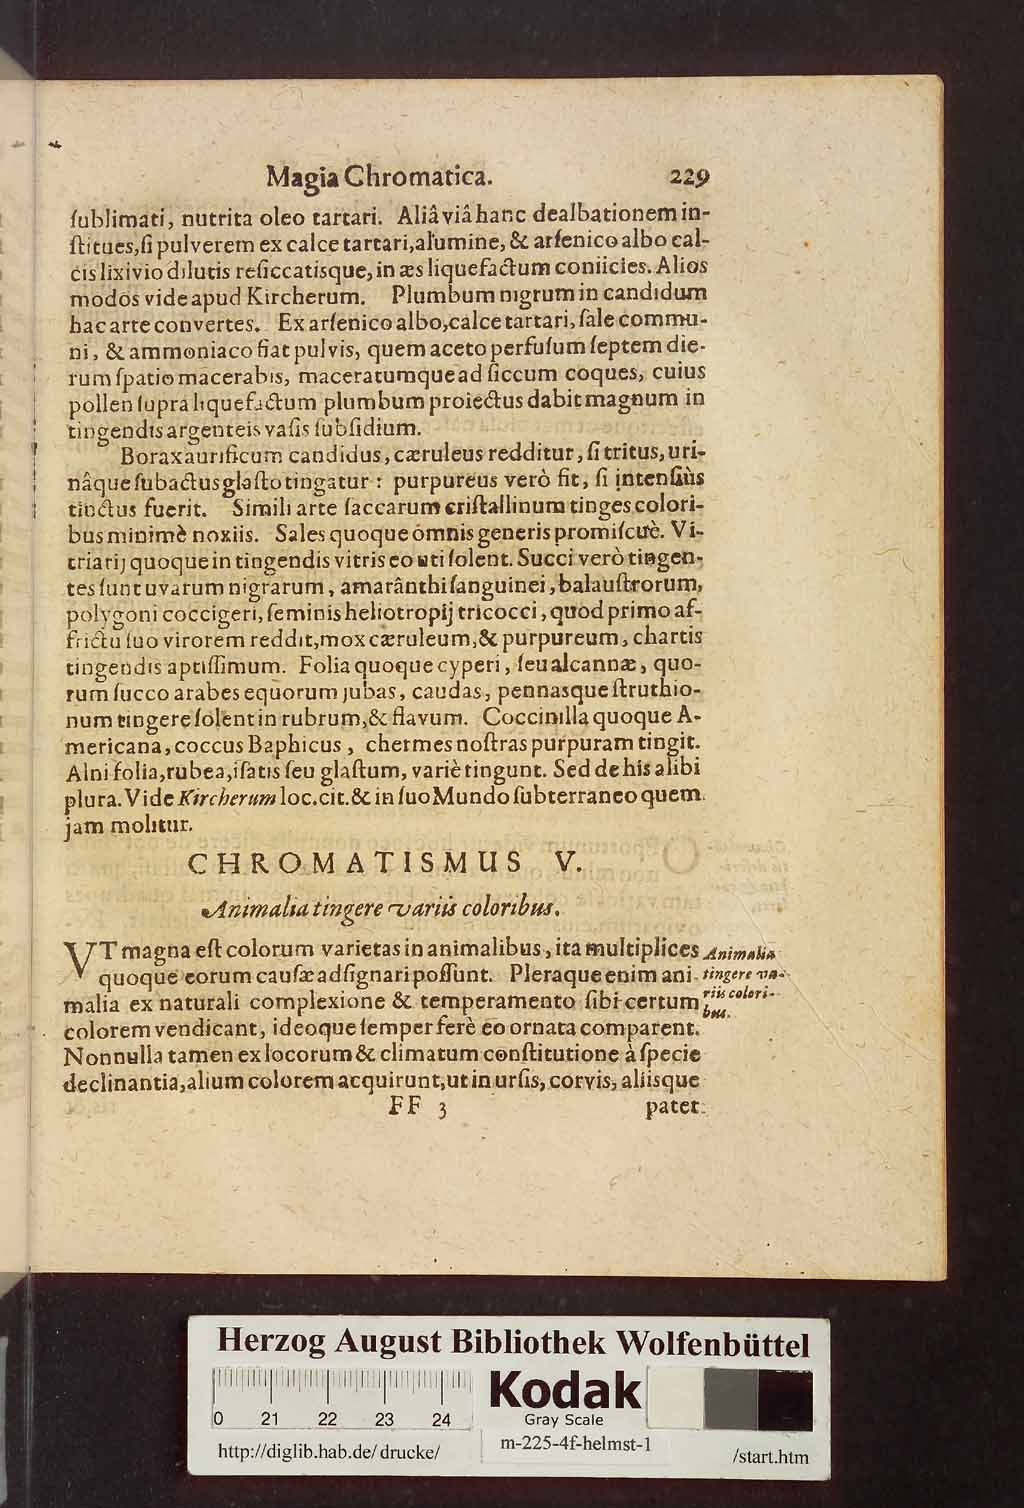 Magia Chromatica. 229
ſublimati, nutrita oleo tartari. Aliâ viâ hanc dealbationem in-
ſtitues, ſi pulverem ex calce tartari, alumine, & arſenico albo cal-
cis lixivio dilutis reſiccatisque, in æs liquefactum coniicies. Alios
modos vide apud Kircherum. Plumbum nigrum in candidum
hac arte convertes. Ex arſenico albo, calce tartari, ſale commu-
ni, & ammoniaco fiat pulvis, quem aceto perfuſum ſeptem die-
rum ſpatio macerabis, maceratumque ad ſiccum coques, cuius
pollen ſupra liquefactum plumbum proiectus dabit magnum in
tingendis argenteis vaſis ſubſidium.
Borax aurificum candidus, cæruleus redditur, ſi tritus, uri-
nâque ſubactus glaſto tingatur: purpureus verò fit, ſi intenſiùs
tinctus fuerit. Simili arte ſaccarum criſtallinum tinges colori-
bus minimè noxiis. Sales quoque omnis generis promiſcuè. Vi-
triarij quoque in tingendis vitris eo uti ſolent. Succi verò tingen-
tes ſunt uvarum nigrarum, amarânthi ſanguinei, balauſtrorum,
polygoni coccigeri, ſeminis heliotropij tricocci, quod primo af-
frictu ſuo virorem reddit, mox cæruleum, & purpureum, chartis
tingendis aptiſſimum. Folia quoque cyperi, ſeu alcannæ, quo-
rum ſucco arabes equorum jubas, caudas, pennasque ſtruthio-
num tingere ſolent in rubrum, & flavum. Coccinilla quoque A-
mericana, coccus Baphicus, chermes noſtras purpuram tingit.
Alni folia, rubea, iſatis ſeu glaſtum, variè tingunt. Sed de his alibi
plura. Vide Kircherum loc. cit. & in ſuo Mundo ſubterraneo quem
jam molitur.
CHROMATISMUS V.
Animalia tingere variis coloribus.
VT magna eſt colorum varietas in animalibus, ita multiplices
quoque eorum cauſæ adſignari poſſunt. Pleraque enim ani-
malia ex naturali complexione & temperamento ſibi certum
colorem vendicant, ideoque ſemper ferè eo ornata comparent.
Nonnulla tamen ex locorum & climatum conſtitutione à ſpecie
declinantia, alium colorem acquirunt, ut in urſis, corvis, aliisque
Animalia
tingere va-
riis colori-
bus.
FF 3 patet
Herzog August Bibliothek Wolfenbüttel
0 21 22 23 24
Kodak
Gray Scale
http://diglib.hab.de/drucke/ m-225-4f-helmst-1 /start.htm